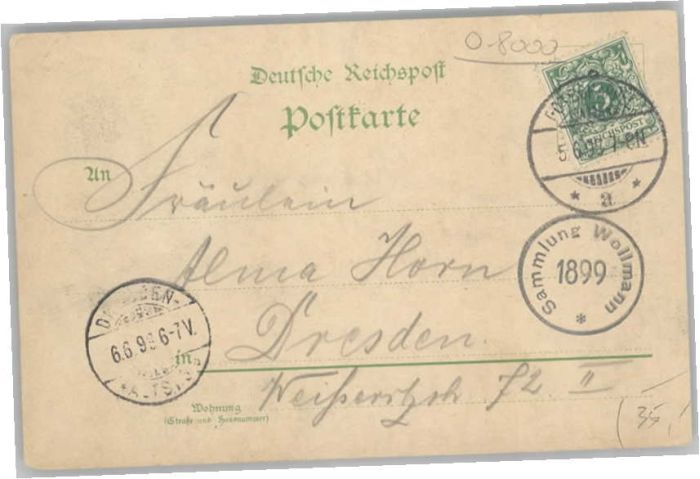 O 8000
Deutsche Reichspost
Postkarte
REICHSPOST
5.6.99 7-8N
* a *
An
Fräulein
Alma Horn
Sammlung Wollmann
1899
*
Dresden.
6.6.99 6-7V.
in
Weißeritzstr. 72 II
Wohnung
(Straße und Hausnummer)
35,